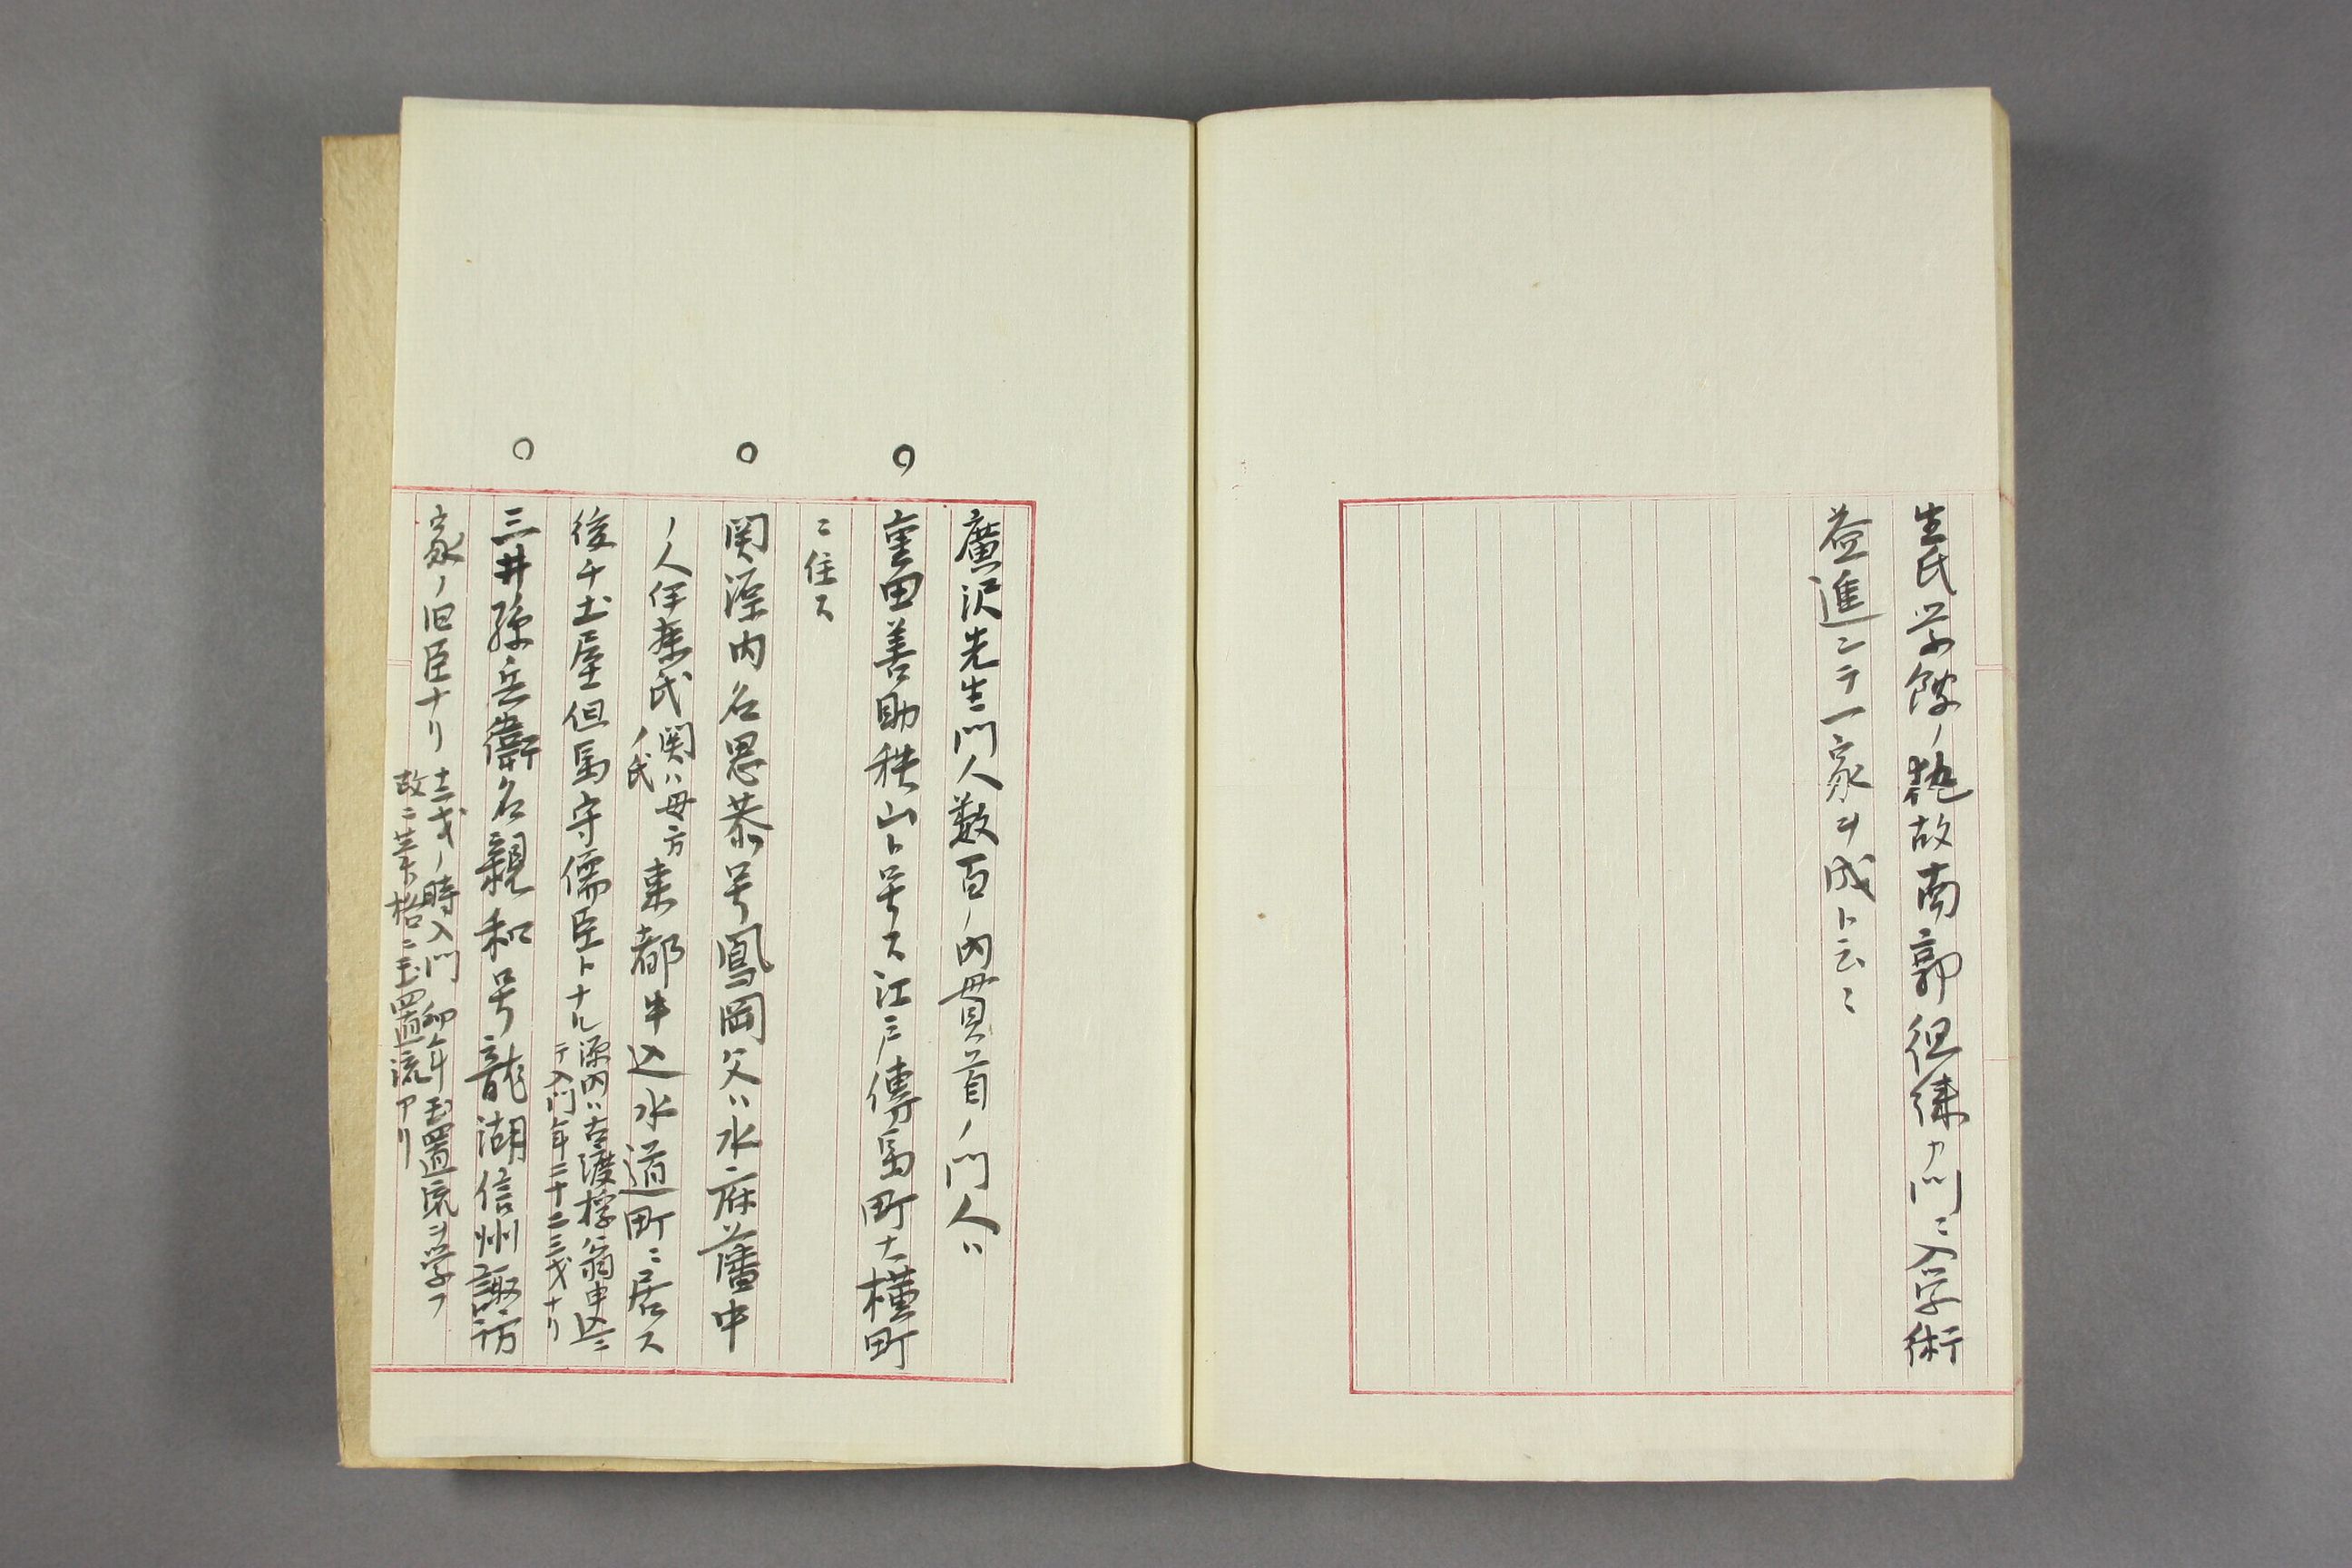 生氏学館ノ塾故南郭徂徠ノ門ニ入学術
益進ンテ一家ヲ成ト云ニ
廣沢先生門人数百ノ内貫首ノ門人ハ
〇重田善助秩山ト号ス江戸傳馬町大横町
ニ住ス
〇関源内名思恭号鳳岡父ハ水府之藩中
ノ人伊藤氏関ハ母方ノ氏東都牛込水道町ニ居ス
後チ土屋但馬守儒臣トナル源内ハ古渡桴翁申込ニテ入門年二十二三才ナリ
〇三井孫兵衛名親和号龍湖信州諏訪
家ノ旧臣ナリ十二才ノ時入門幼年玉置流ヲ学フ
故ニ其骨格ニ玉置流アリ